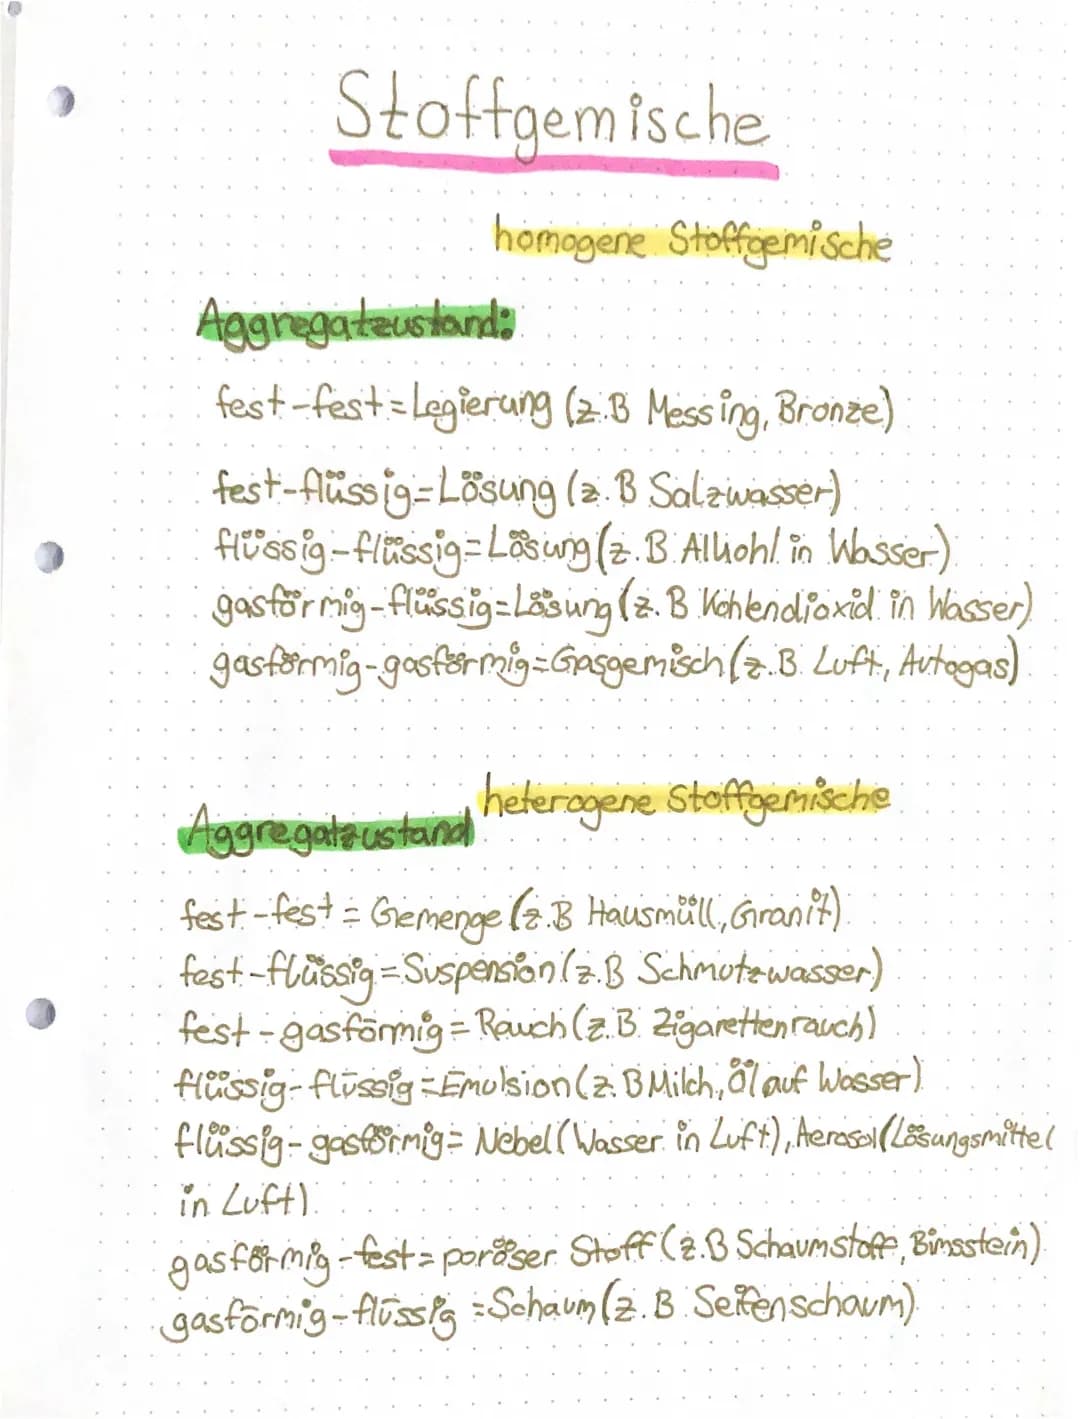 Stoffgemische
homogene Stoffgemische
Aggregatzustand:
fest-fest=Legierung (z.B Messing, Bronze)
fest-flüssig=Lösung (z.B Salzwasser)
flüssig-flüssig=Lösung (z.B Alkohl in Wasser)
gasförmig-flüssig=Lösung (z.B Kohlendioxid in Wasser)
gasförmig-gasförmig=Gasgemisch (z.B. Luft, Autogas)
heterogene Stoffgemische
Aggregatzustand
fest-fest = Gemenge (z.B Hausmüll, Granit)
fest-flüssig = Suspension (z.B Schmutzwasser)
fest-gasförmig = Rauch (z.B. Zigarettenrauch)
flüssig-flüssig = Emulsion (z.B Milch, Öl auf Wasser)
flüssig-gasförmig= Nebel (Wasser in Luft), Aerosol (Lösungsmittel
in Luft)
gasförmig-fest= poröser Stoff (z.B Schaumstoff, Bimsstein)
gasförmig-flüssig =Schaum (z.B Seifenschaum)